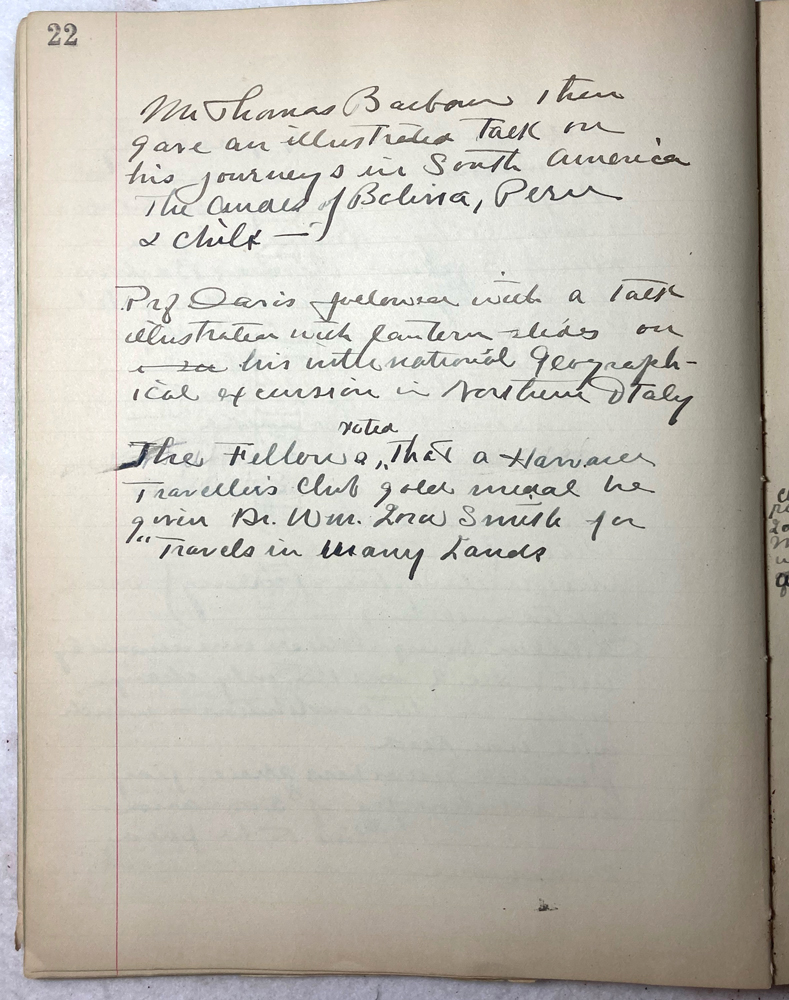 22
Mr Thomas Barbour then
gave an illustrated Talk on
his journeys in South America
The Andes of Bolivia, Peru
& Chile —
Prof Davis followed with a Talk
illustrated with lantern slides on
his international Geograph-
ical excursion in Northern Italy
voted
The Fellows, That a Harvard
Travellers Club gold medal be
given Dr. Wm. Lord Smith for
"Travels in Many Lands